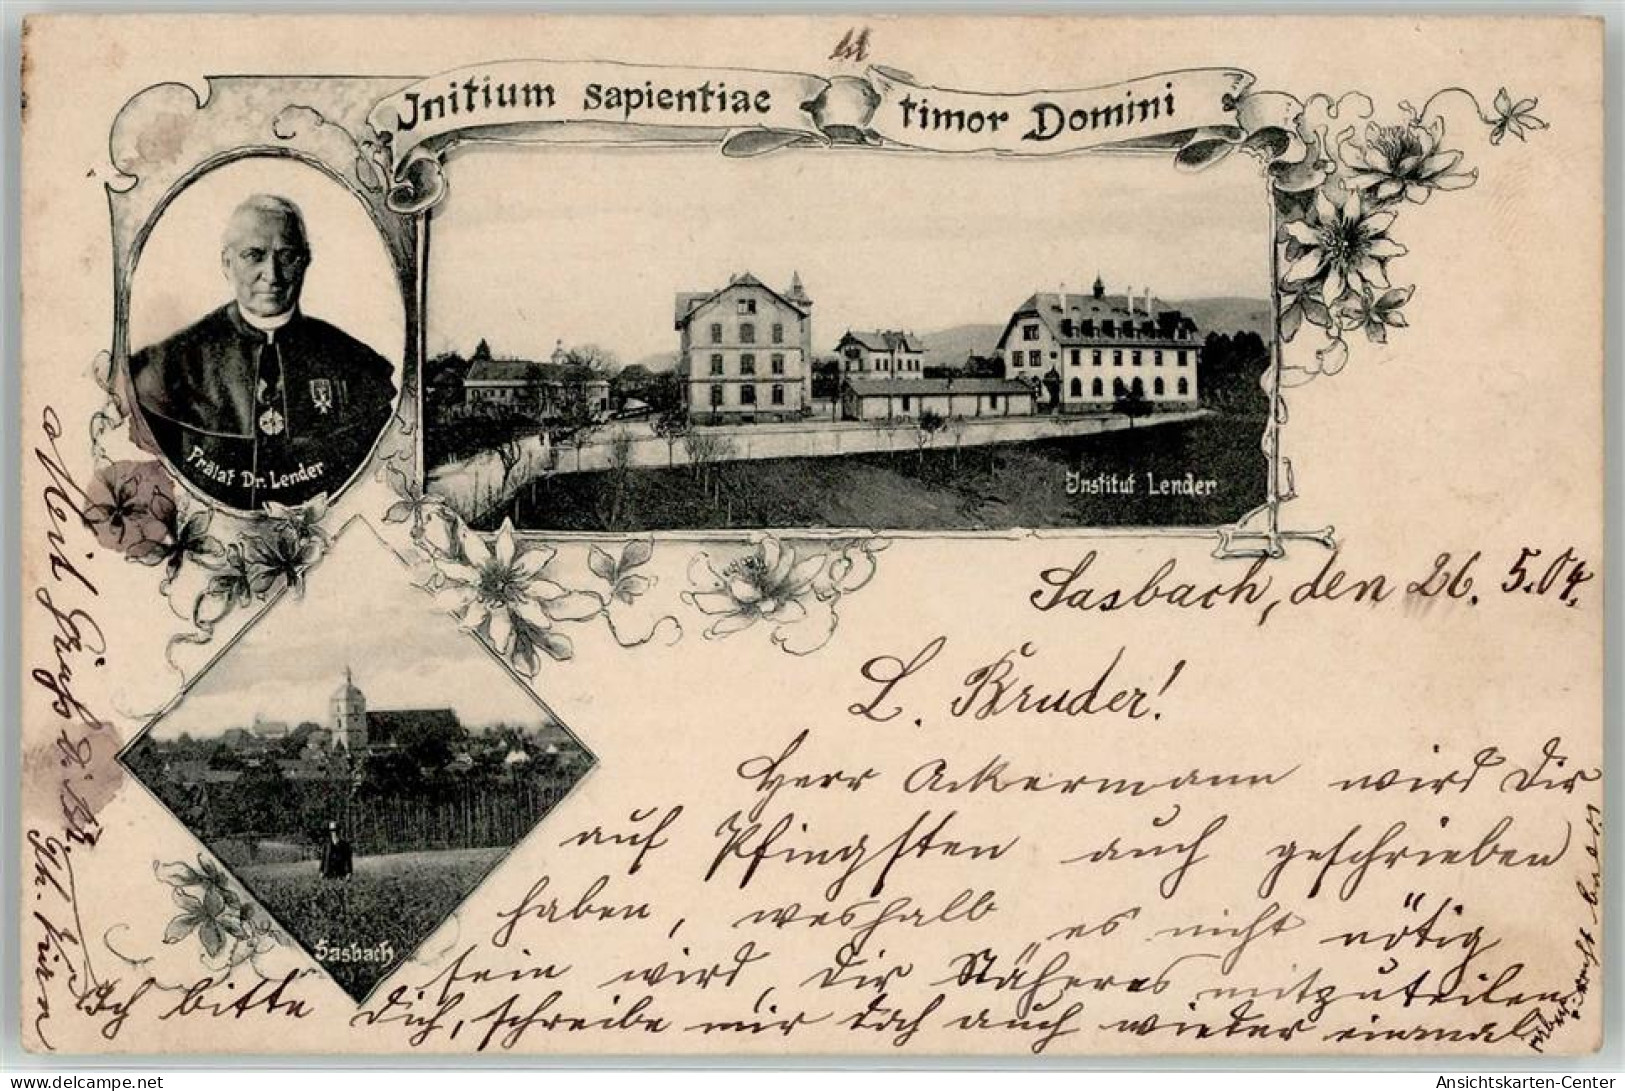 est
Initium Sapientiae timor Domini
Prälat Dr. Lender
Institut Lender
Sasbach
Sasbach, den 26. 5. 04.
L. Bruder!
Herr Ackermann wird Dir
auf Pfingsten auch geschrieben
haben, weshalb es nicht nötig
sein wird, Dir Näheres mitzuteilen.
Ich bitte Dich, schreibe mir doch auch wieder einmal
Mit Gruß D. Br.
AK Ansichtskarten-Center